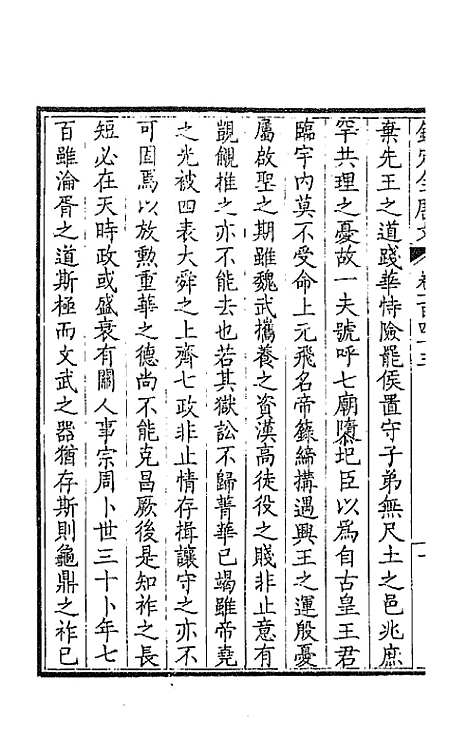 欽定全唐文 卷一百四十三
棄先王之道踐華恃險罷侯置守子弟無尺土之邑兆庶
罕共理之憂故一夫號呼七廟隳圯臣以爲自古皇王君
臨宇内莫不受命上元飛名帝籙締搆遇興王之運殷憂
屬啟聖之期雖魏武攜養之資漢高徒役之賤非止意有
覬覦推之亦不能去也若其獄訟不歸菁華已竭雖帝堯
之光被四表大舜之上齊七政非止情存揖讓守之亦不
可固焉以放勲重華之德尚不能克昌厥後是知祚之長
短必在天時政或盛衰有關人事宗周卜世三十卜年七
百雖淪胥之道斯極而文武之器猶存斯則龜鼎之祚已